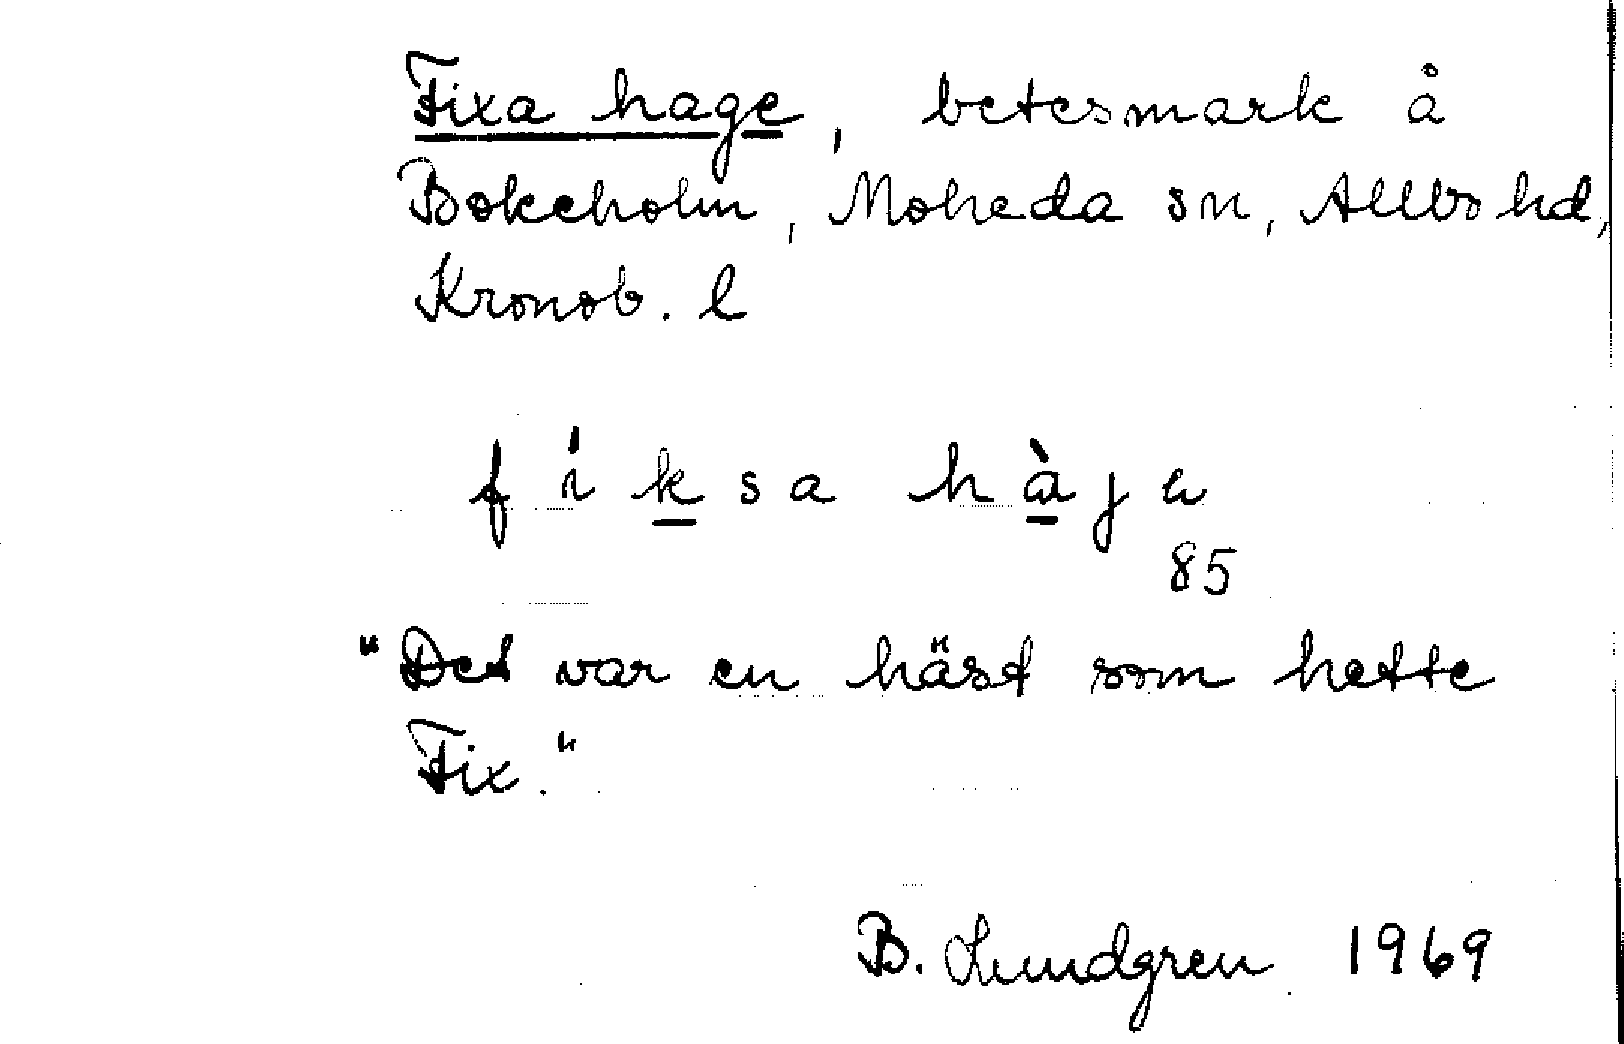 Fixa hage, betesmark å
Bokeholm, Moheda sn, Allbo hd,
Kronob. l
fíksa hàge
85
"Det var en häst som hette
Fix."
B. Lundgren 1969